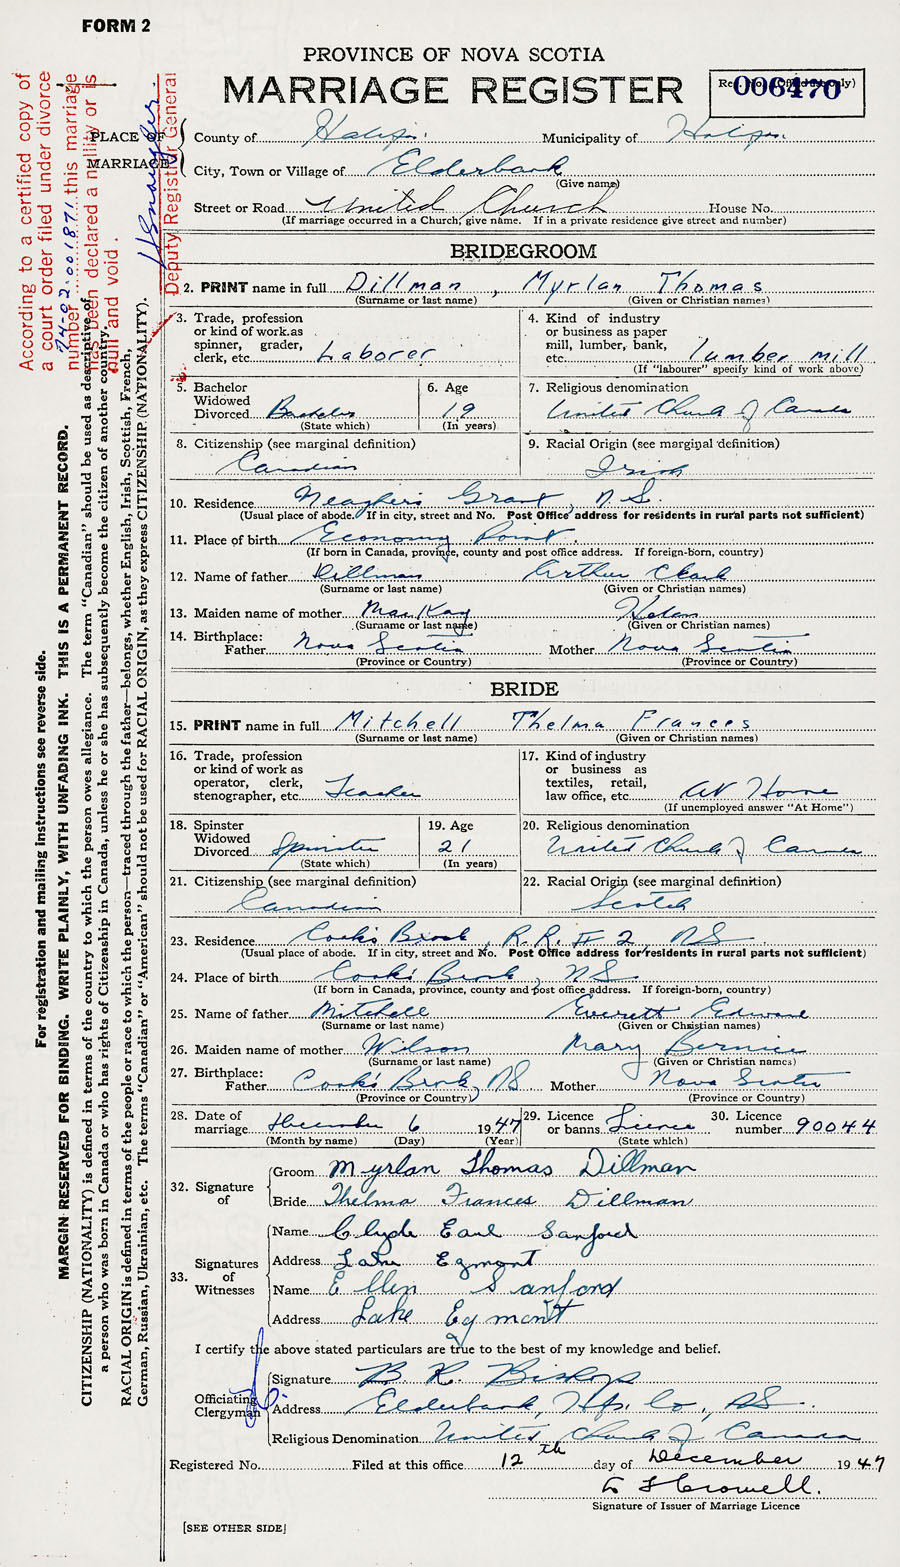 FORM 2
PROVINCE OF NOVA SCOTIA
MARRIAGE REGISTER
006470
PLACE OF MARRIAGE
County of Halifax. Municipality of Halifax.
City, Town or Village of Elderbank
(Give name)
Street or Road United Church House No.
(If marriage occurred in a Church, give name. If in a private residence give street and number)
BRIDEGROOM
2. PRINT name in full Dillman, Myrlan Thomas
(Surname or last name) (Given or Christian names)
3. Trade, profession or kind of work as spinner, grader, clerk, etc. Laborer
4. Kind of industry or business as paper mill, lumber, bank, etc. lumber mill
(If "labourer" specify kind of work above)
5. Bachelor Widowed Divorced Bachelor
(State which)
6. Age 19
(In years)
7. Religious denomination
United Church of Canada
8. Citizenship (see marginal definition)
Canadian
9. Racial Origin (see marginal definition)
Irish
10. Residence Meaghers Grant, N.S.
(Usual place of abode. If in city, street and No. Post Office address for residents in rural parts not sufficient)
11. Place of birth Economy Point.
(If born in Canada, province, county and post office address. If foreign-born, country)
12. Name of father Dillman Arthur Clark
(Surname or last name) (Given or Christian names)
13. Maiden name of mother MacKay Helen
(Surname or last name) (Given or Christian names)
14. Birthplace:
Father Nova Scotia Mother Nova Scotia
(Province or Country) (Province or Country)
BRIDE
15. PRINT name in full Mitchell Thelma Frances
(Surname or last name) (Given or Christian names)
16. Trade, profession or kind of work as operator, clerk, stenographer, etc. Teacher
17. Kind of industry or business as textiles, retail, law office, etc. At Home
(If unemployed answer "At Home")
18. Spinster Widowed Divorced Spinster
(State which)
19. Age 21
(In years)
20. Religious denomination
United Church of Canada
21. Citizenship (see marginal definition)
Canadian
22. Racial Origin (see marginal definition)
Scotch
23. Residence Cook's Brook, R.R. # 2 NS
(Usual place of abode. If in city, street and No. Post Office address for residents in rural parts not sufficient)
24. Place of birth Cook's Brook, NS
(If born in Canada, province, county and post office address. If foreign-born, country)
25. Name of father Mitchell Everett Edward
(Surname or last name) (Given or Christian names)
26. Maiden name of mother Wilson Mary Bernice
(Surname or last name) (Given or Christian names)
27. Birthplace:
Father Cook's Brook, NS Mother Nova Scotia
(Province or Country) (Province or Country)
28. Date of marriage December 6 1947
(Month by name) (Day) (Year)
29. Licence or banns License
(State which)
30. Licence number 90044
32. Signature of
Groom Myrlan Thomas Dillman
Bride Thelma Frances Dillman
33. Signatures of Witnesses
Name Clyde Earl Sanford
Address Lake Egmont
Name Ellen Sanford
Address Lake Egmont
I certify the above stated particulars are true to the best of my knowledge and belief.
Officiating Clergyman
Signature B. R. Bishop
Address Elderbank, Hfx. Co., NS.
Religious Denomination United Church of Canada
Registered No. Filed at this office 12th day of December 1947
Crowell.
Signature of Issuer of Marriage Licence
[SEE OTHER SIDE]
According to a certified copy of
a court order filed under divorce
number 74-02-001871 this marriage
has been declared a nullity or is
null and void.
Deputy Registrar General
For registration and mailing instructions see reverse side.
MARGIN RESERVED FOR BINDING. WRITE PLAINLY, WITH UNFADING INK. THIS IS A PERMANENT RECORD.
CITIZENSHIP (NATIONALITY) is defined in terms of the country to which the person owes allegiance. The term "Canadian" should be used as descriptive of
a person who was born in Canada or who has rights of Citizenship in Canada, unless he or she has subsequently become the citizen of another country.
RACIAL ORIGIN is defined in terms of the people or race to which the person—traced through the father—belongs, whether English, Irish, Scottish, French,
German, Russian, Ukrainian, etc. The terms "Canadian" or "American" should not be used for RACIAL ORIGIN, as they express CITIZENSHIP (NATIONALITY).